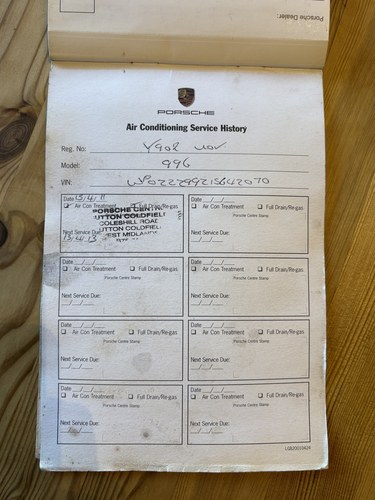 Porsche Dealer:
PORSCHE
Air Conditioning Service History
Reg. No:
Model: 996
VIN:
Date 15/4/11
Air Con Treatment
PORSCHE CENTRE
SUTTON COLDFIELD
COLESHILL ROAD
SUTTON COLDFIELD
WEST MIDLANDS
Next Service Due:
15/4/13
Date __/__/__
Air Con Treatment Full Drain/Re-gas
Porsche Centre Stamp
Next Service Due:
__/__/__
Date __/__/__
Air Con Treatment Full Drain/Re-gas
Porsche Centre Stamp
Next Service Due:
__/__/__
Date __/__/__
Air Con Treatment Full Drain/Re-gas
Porsche Centre Stamp
Next Service Due:
__/__/__
Date __/__/__
Air Con Treatment Full Drain/Re-gas
Porsche Centre Stamp
Next Service Due:
__/__/__
Date __/__/__
Air Con Treatment Full Drain/Re-gas
Porsche Centre Stamp
Next Service Due:
__/__/__
Date __/__/__
Air Con Treatment Full Drain/Re-gas
Porsche Centre Stamp
Next Service Due:
__/__/__
Date __/__/__
Air Con Treatment Full Drain/Re-gas
Porsche Centre Stamp
Next Service Due:
__/__/__